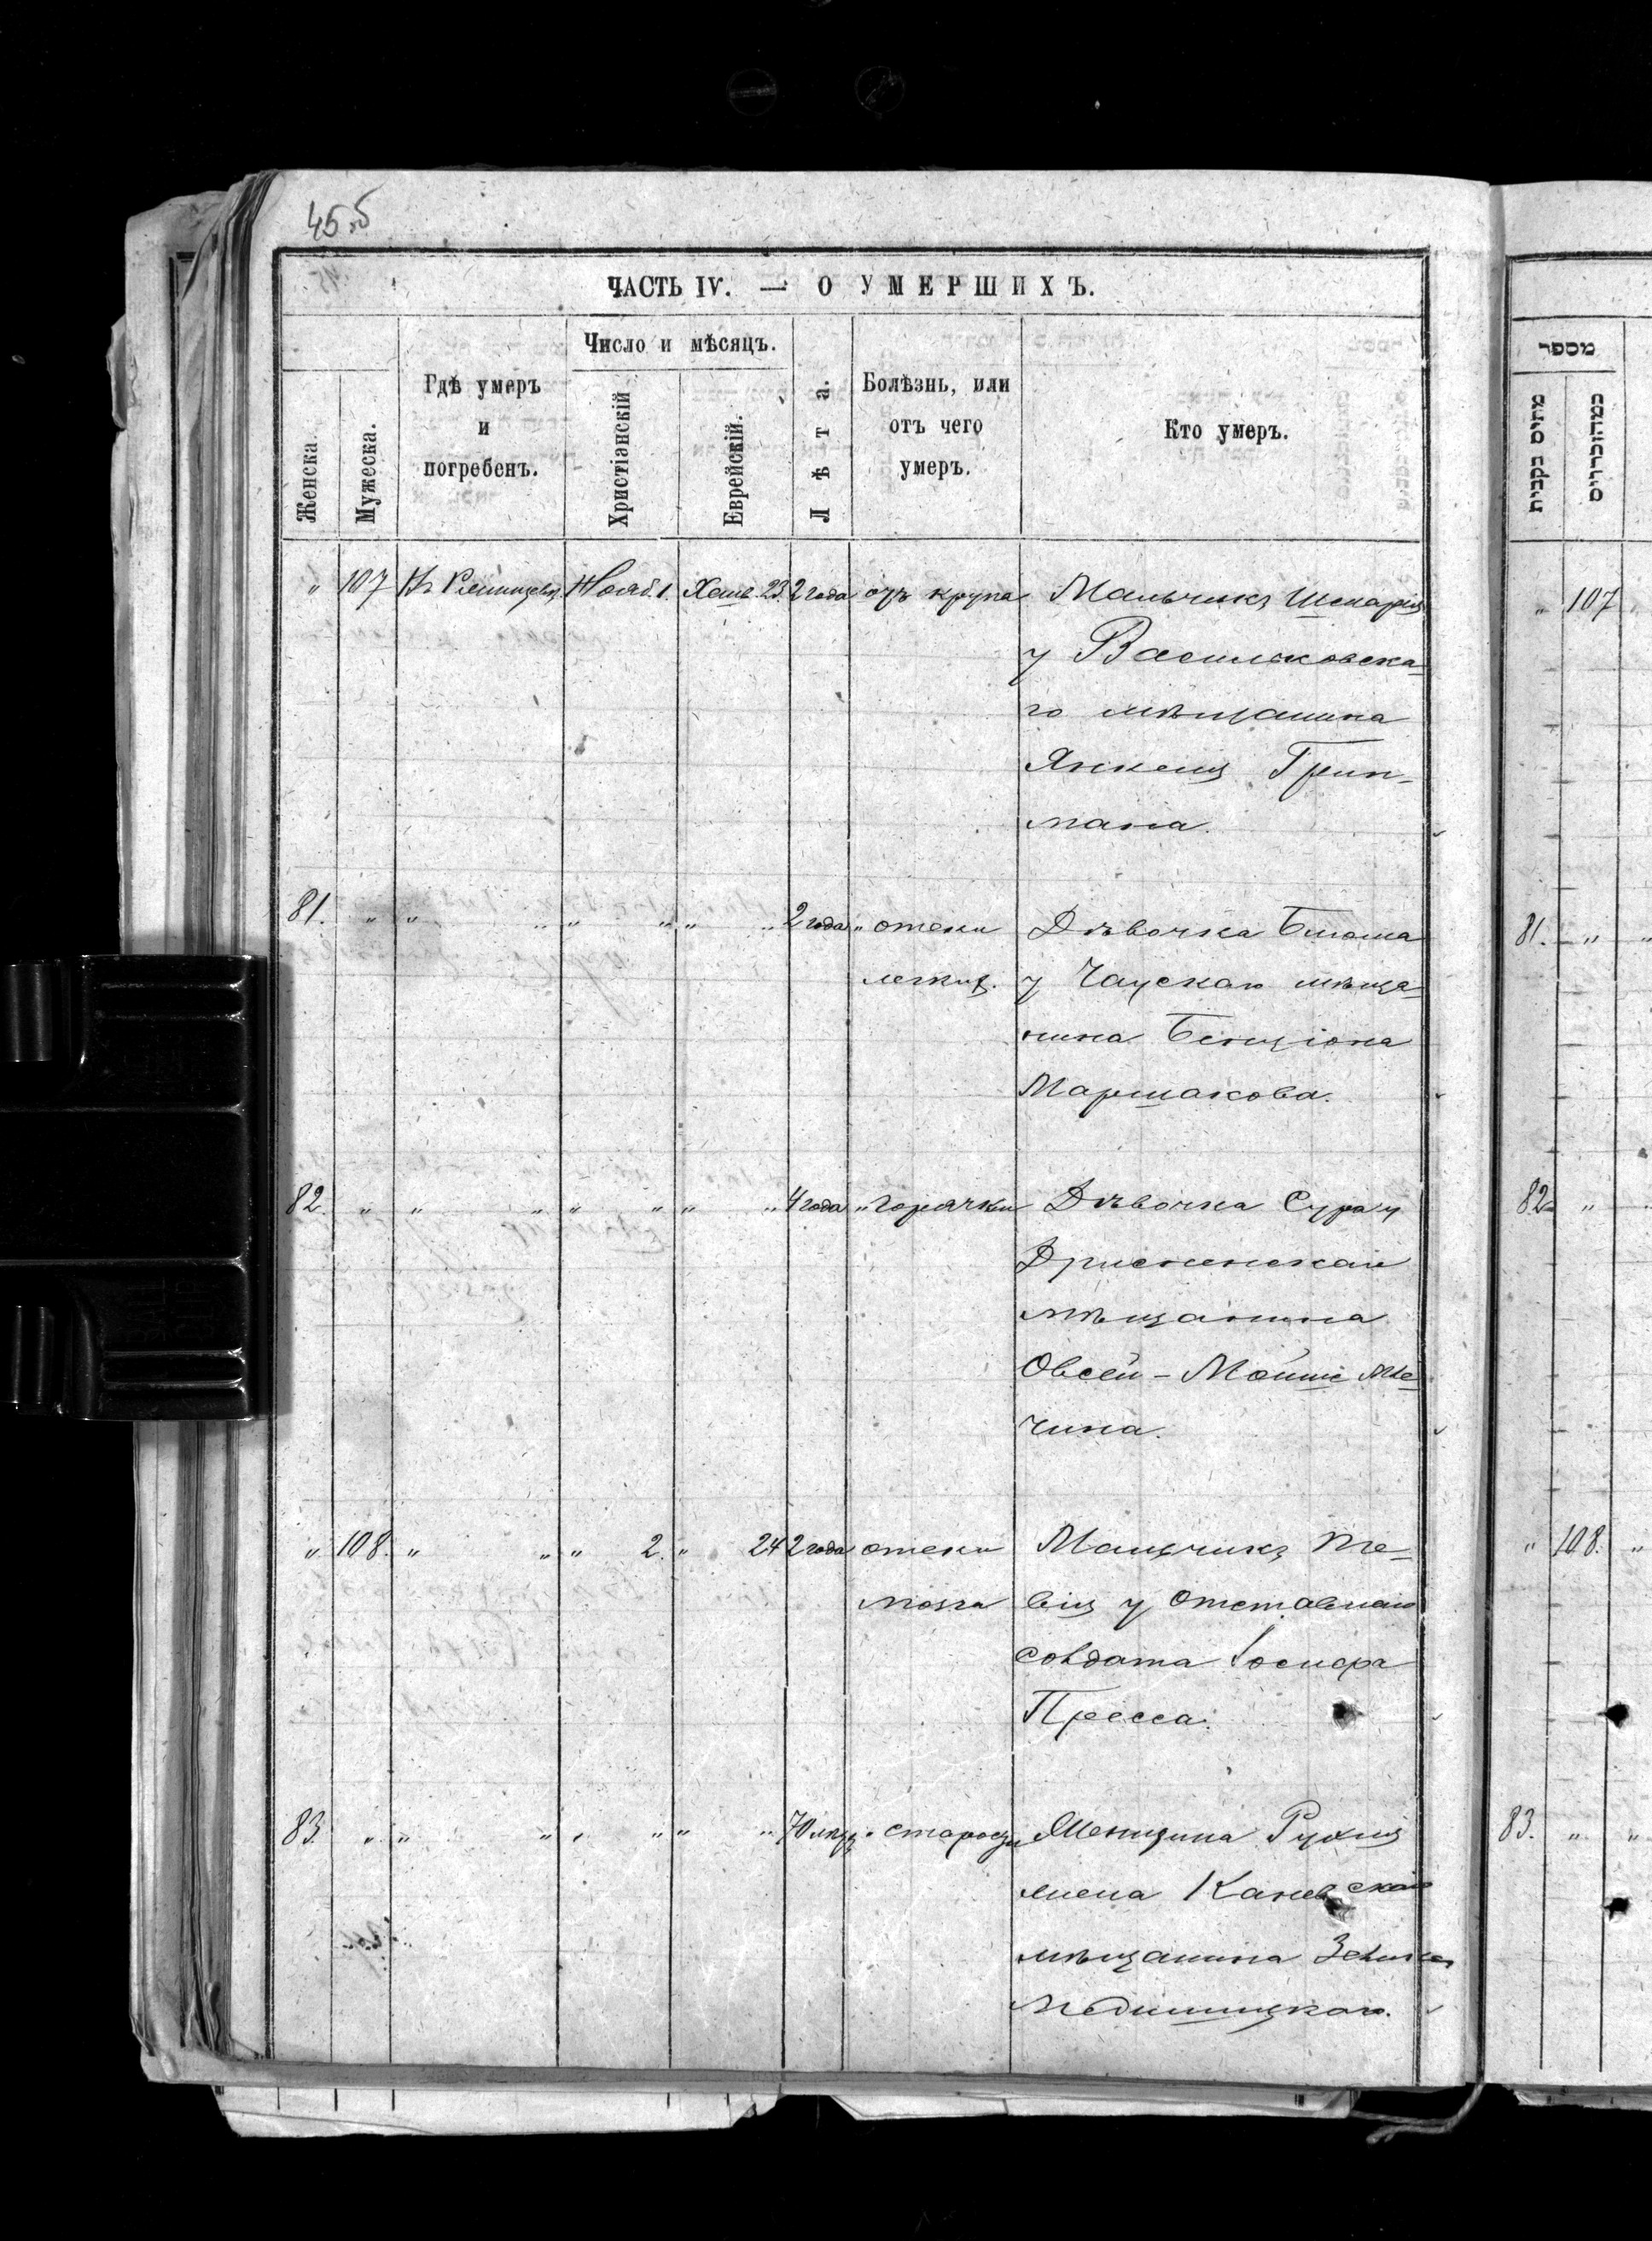 45 об
ЧАСТЬ IV. — О УМЕРШИХЪ.
Женска.
Мужеска.
Гдѣ умеръ
и
погребенъ.
Число и мѣсяцъ.
Христіанскій
Еврейскій.
Лѣта.
Болѣзнь, или
отъ чего
умеръ.
Кто умеръ.
" 107 Нояб. 1. Хешв. 23. 2 года отъ крупа Мальчикъ
у Васильковска-
го мѣщанина
Янкеля Грин-
мана.
81. " " " " " " " 2 года " отека Дѣвочка
легкихъ. у Чаускаго мѣща-
нина Бенціона
Маршакова.
82. " " " " " " " 4 года " горячки Дѣвочка Сура у
Дрисненскаго
мѣщанина
Овсей-Мойше Ме-
чина.
" 108. " " " 2. " 24 2 года отека Мальчикъ Те-
мозга віи у отставнаго
солдата
Пресса.
83. " " " " " " " 70 лѣтъ " старости Женщина Рухля
жена Каневскаго
мѣщанина
מספר
מתים נקבות
במהזכרים
" 107
81. " "
82. " "
" 108. "
83. " "